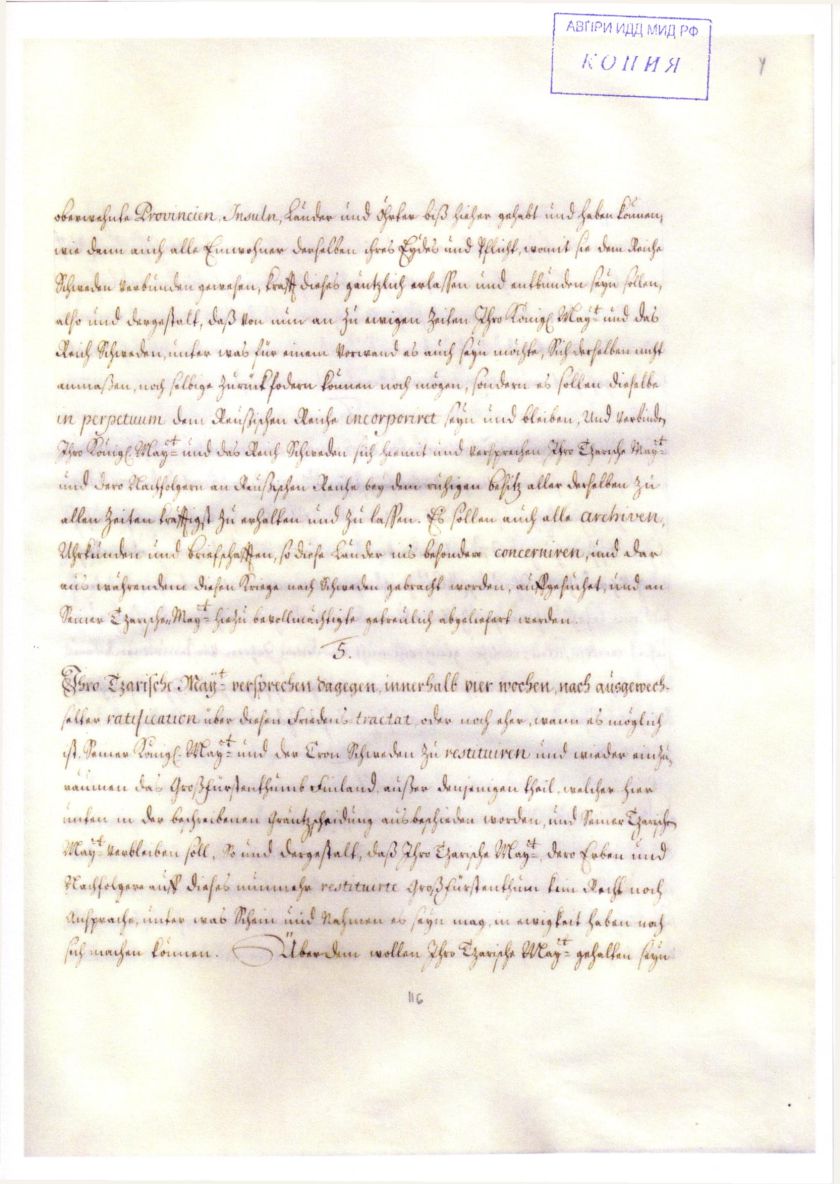 АВПРИ ИДД МИД РФ
КОПИЯ
oberwehnte Provincien, Insuln, Länder und Öhrter biß hieher gehabt und haben können,
wie dann auch alle Einwohner derselben ihres Eydes und Pflicht, womit sie dem Reiche
Schweden verbunden gewesen, krafft dieses gäntzlich erlassen und entbunden seyn sollen,
also und dergestalt, daß von nun an zu ewigen Zeiten Ihro Königl. Mayt. und das
Reich Schweden, unter was für einem Vorwand es auch seyn möchte, Sich derselben nicht
anmaßen, noch selbige zurückfodern können noch mögen, sondern es sollen dieselbe
in perpetuum dem Reußischen Reiche incorporiret seyn und bleiben, Und verbinden
Ihro Königl. Mayt. und das Reich Schweden sich hiemit und versprechen Ihro Tzarische Mayt.
und dero Nachfolgern am Reußischen Reiche bey dem ruhigen besitz aller derselben zu
allen Zeiten kräfftigst zu erhalten und zu lassen. Es sollen auch alle archiven,
Uhrkunden und Briefschafften, so diese Länder ins besondere concerniren, und dar
aus währendem diesen Kriege nach Schweden gebracht worden, auffgesuchet, und an
Seiner Tzarischen Mayt. hiezu bevollmächtigte getreulich abgeliefert werden.
5.
Ihro Tzarische Mayt. versprechen dagegen, innerhalb vier wochen, nach ausgewech-
selter ratification über diesen Friedens tractat, oder noch eher, wann es möglich
ist, Seiner Königl. Mayt. und der Cron Schweden zu restituiren und wieder einzu-
räumen das Großfürstenthumb Finland, außer denjenigen theil, welcher hier
unten in der beschriebenen Gräntzscheidung ausbeschieden worden, und Seiner Tzarischen
Mayt. verbleiben soll, So und dergestalt, daß Ihro Tzarische Mayt., dero Erben und
Nachfolgere auff dieses nunmehr restituirte Großfürstenthum kein Recht noch
Ansprache, unter was Schein und Nahmen es seyn mag, in ewigkeit haben noch
sich machen können. Überdem wollen Ihro Tzarische Mayt. gehalten seyn
116